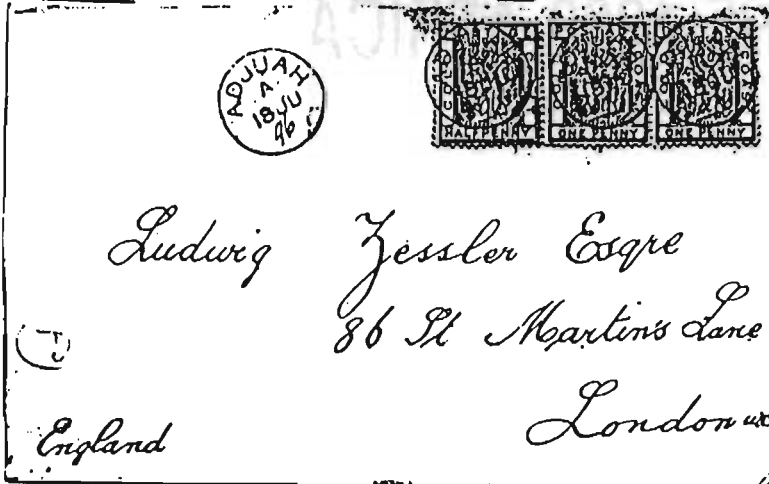 ADJUAH
A
18 JU
96
HALFPENNY ONE PENNY ONE PENNY
Ludwig Zessler Esqre
86 St Martin's Lane
London WC
England